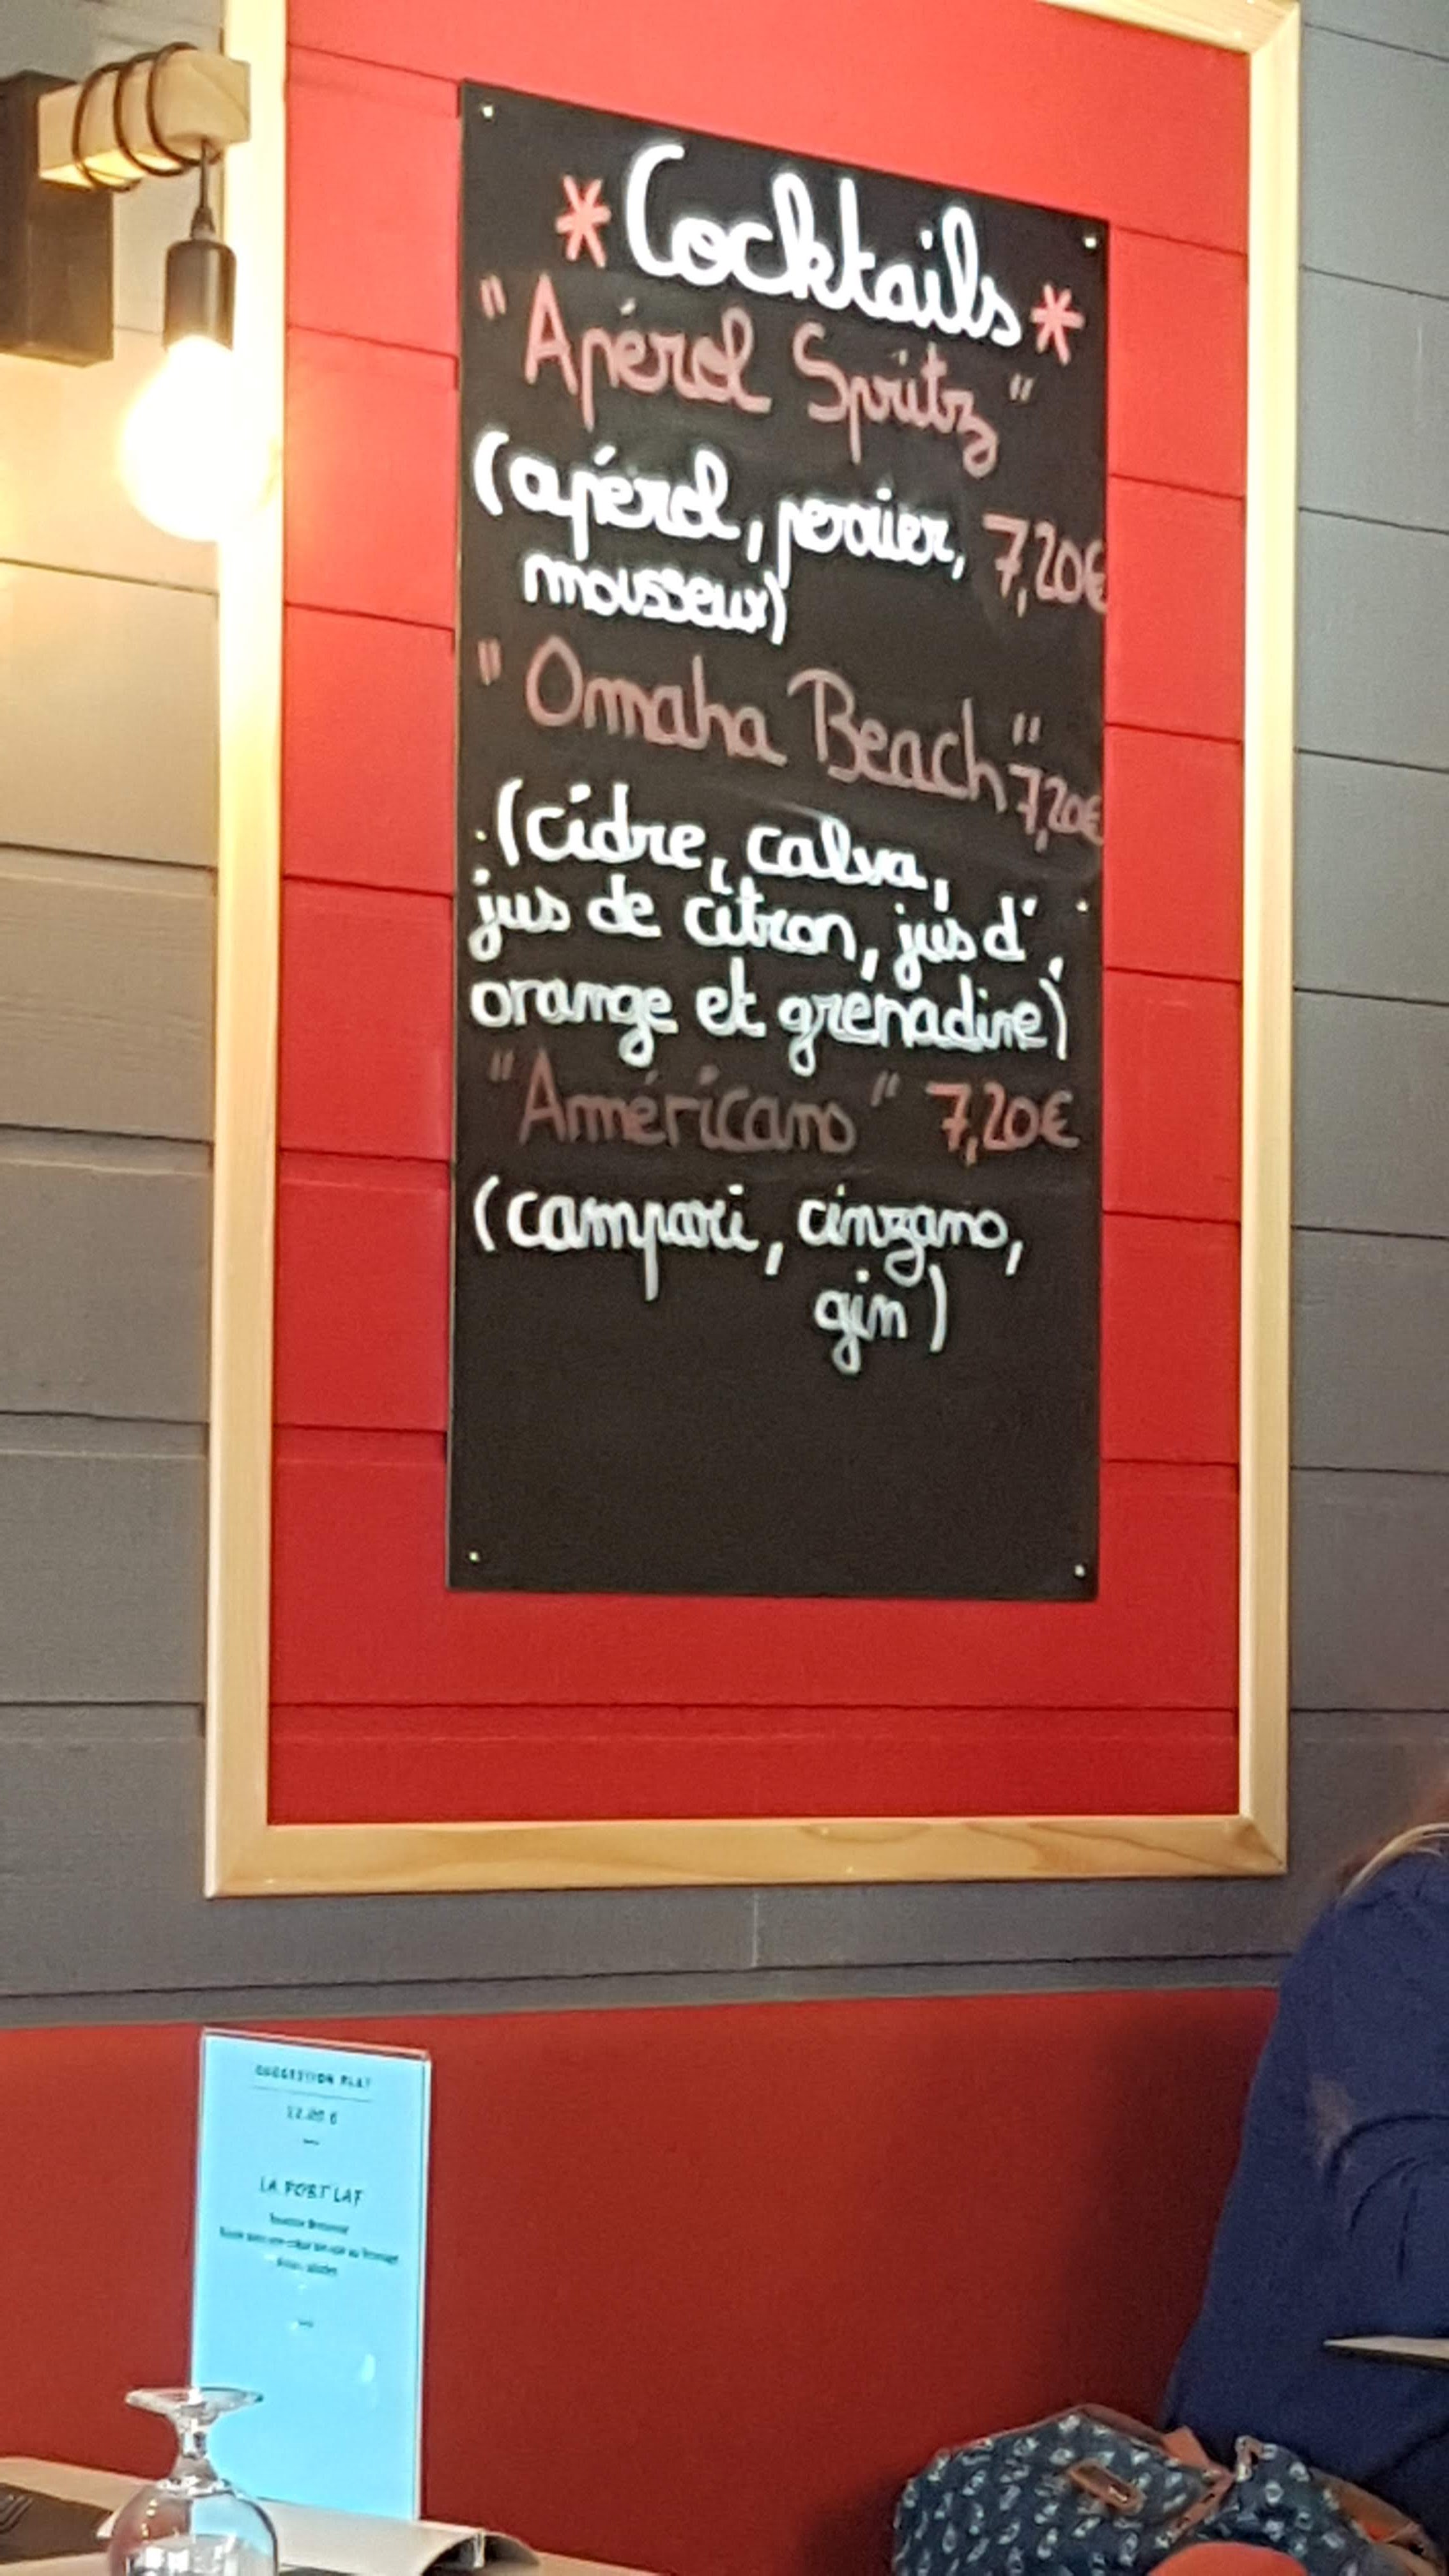 * Cocktails *
"Apérol Spritz"
(apérol, perrier, 7,20€
mousseux)
"Omaha Beach" 7,20€
(cidre, calva,
jus de citron, jus d'
orange et grenadine)
"Américano" 7,20€
(campari, cinzano,
gin)
SUGGESTION PLAT
LA PORT LAF